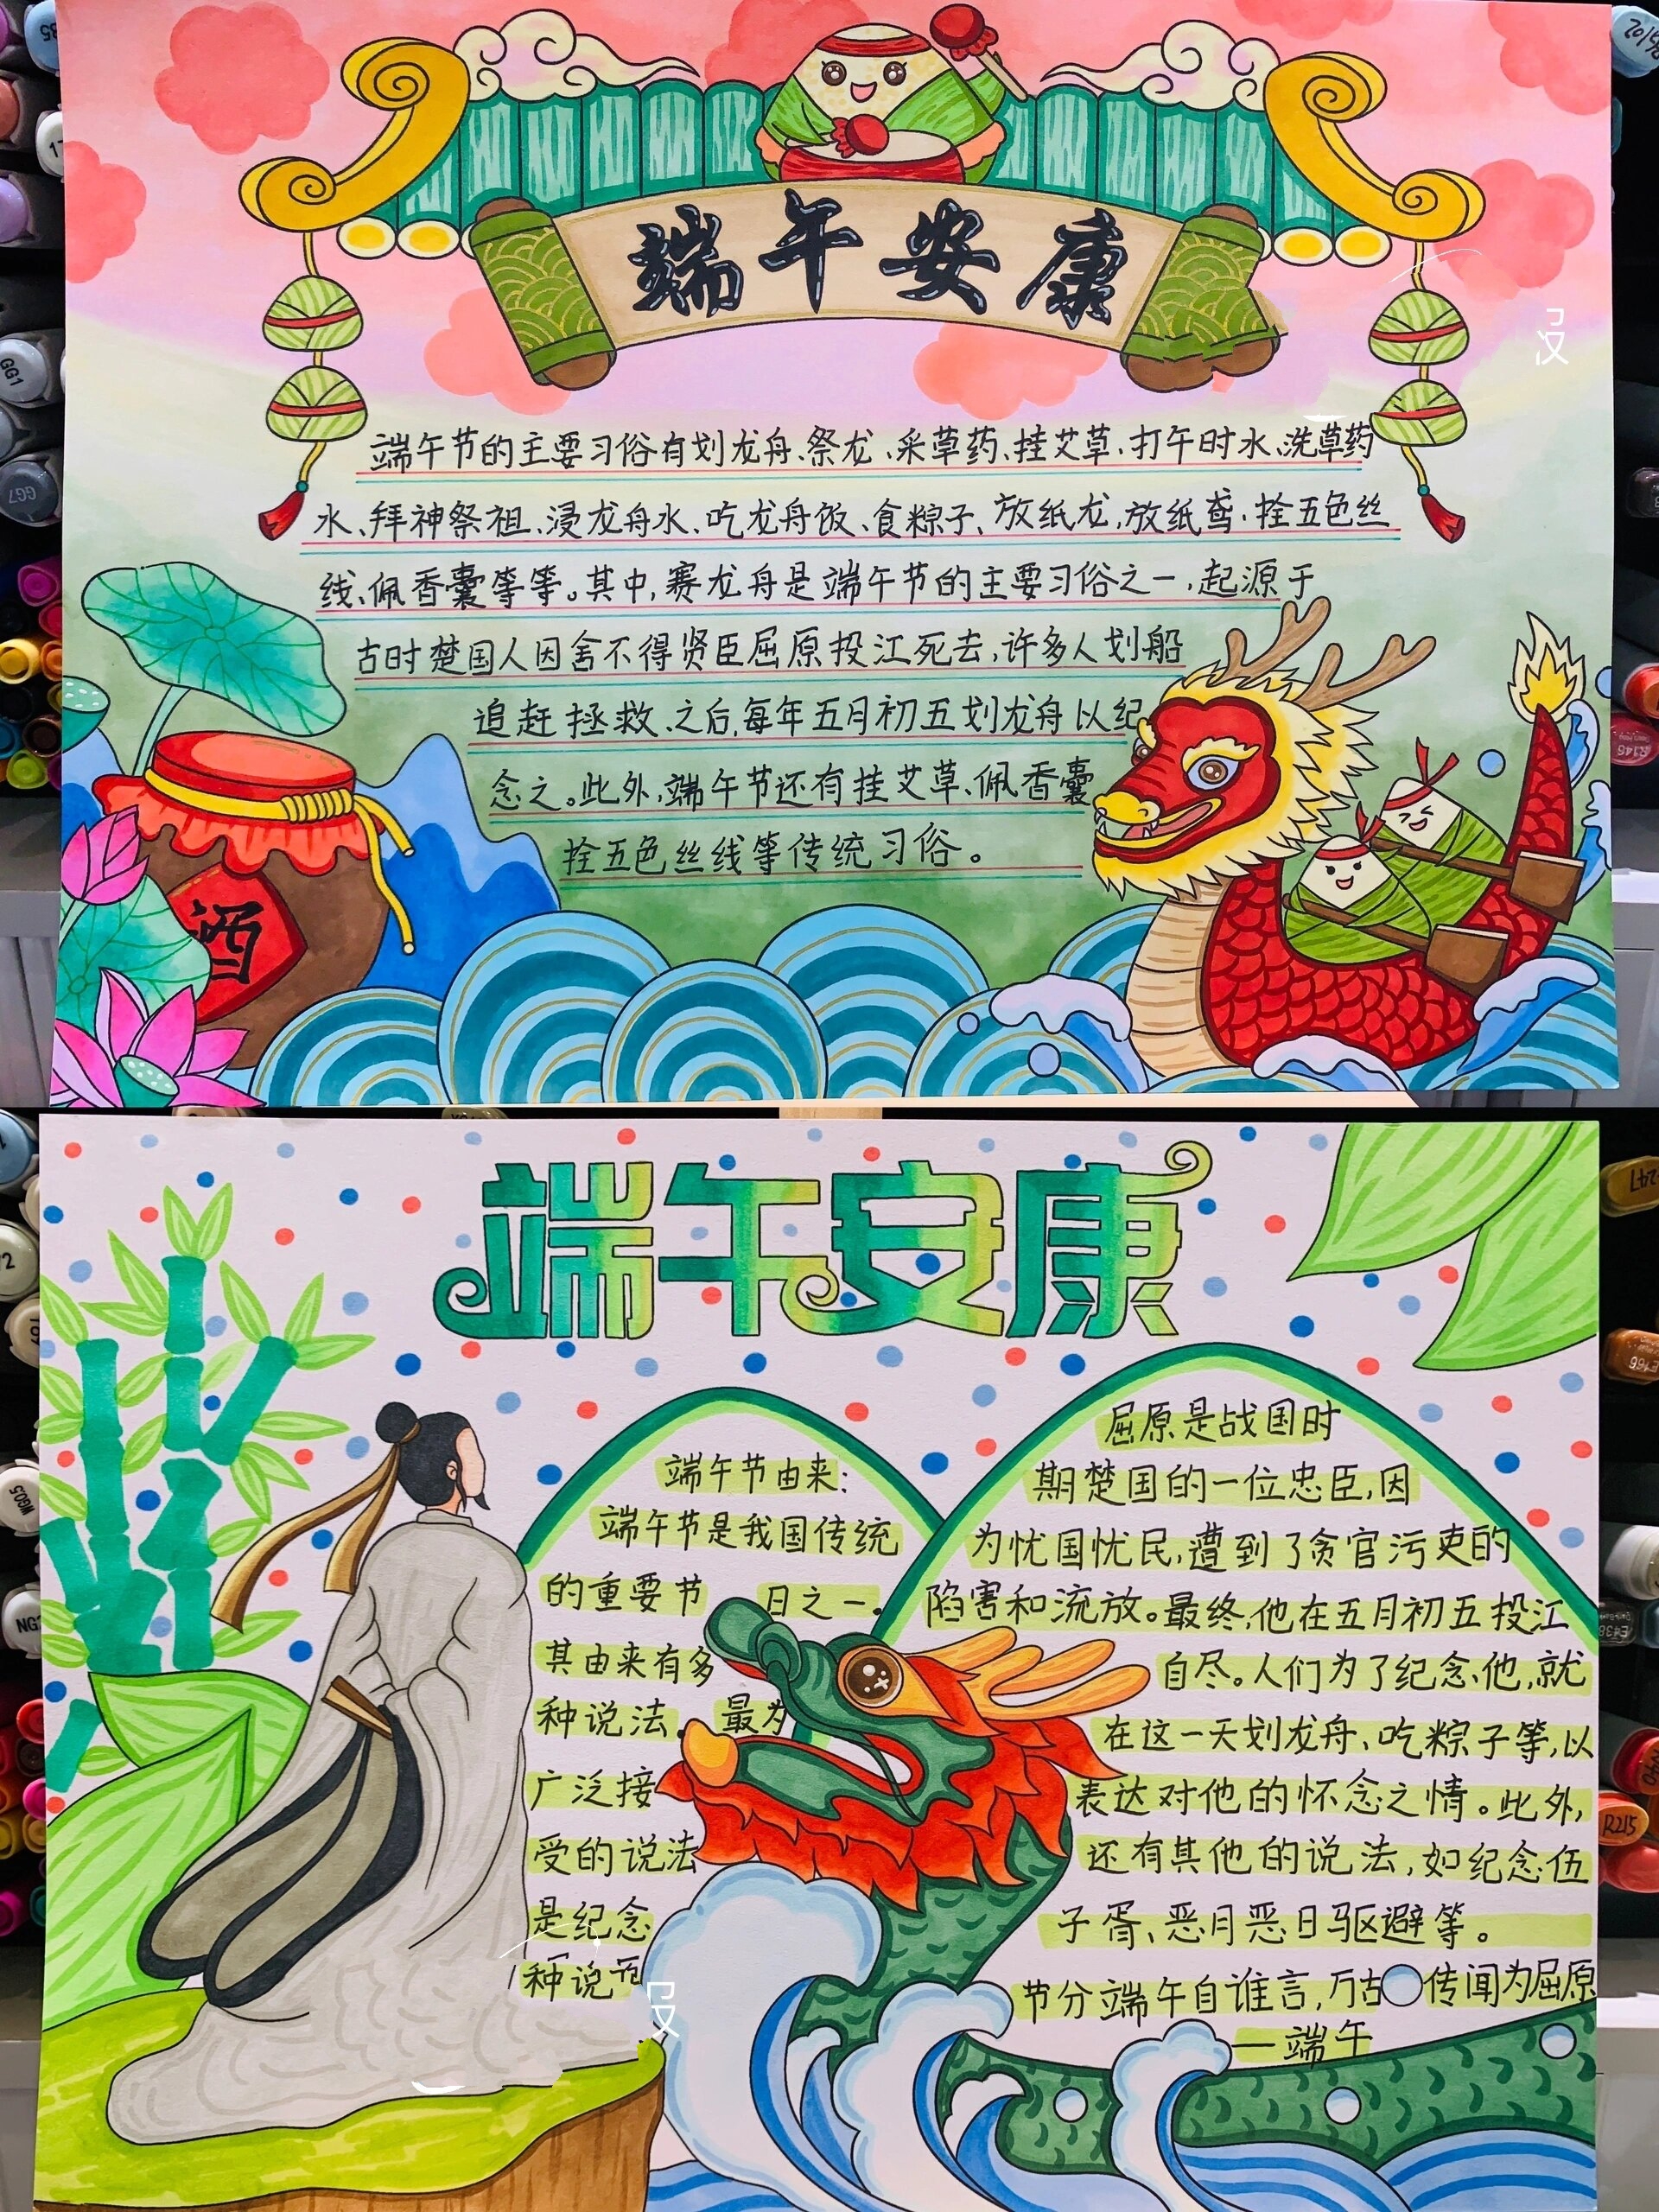 端午安康
端午节的主要习俗有划龙舟、祭龙、采草药、挂艾草、打午时水、洗草药
水、拜神祭祖、浸龙舟水、吃龙舟饭、食粽子、放纸龙、放纸鸢、拴五色丝
线、佩香囊等等。其中,赛龙舟是端午节的主要习俗之一,起源于
古时楚国人因舍不得贤臣屈原投江死去,许多人划船
追赶拯救。之后,每年五月初五划龙舟以纪
念之。此外,端午节还有挂艾草、佩香囊
拴五色丝线等传统习俗。
酒
端午安康
端午节由来:
端午节是我国传统
的重要节 日之一。
其由来有多
种说法。 最为
广泛接
受的说法
是纪念
种说
屈原是战国时
期楚国的一位忠臣,因
为忧国忧民,遭到了贪官污吏的
陷害和流放。最终,他在五月初五投江
自尽。人们为了纪念他,就
在这一天划龙舟、吃粽子等,以
表达对他的怀念之情。此外,
还有其他的说法,如纪念伍
子胥、恶月恶日驱避等。
节分端午自谁言,万古 传闻为屈原
—端午
GG1
GG7
R146
WG05
R215